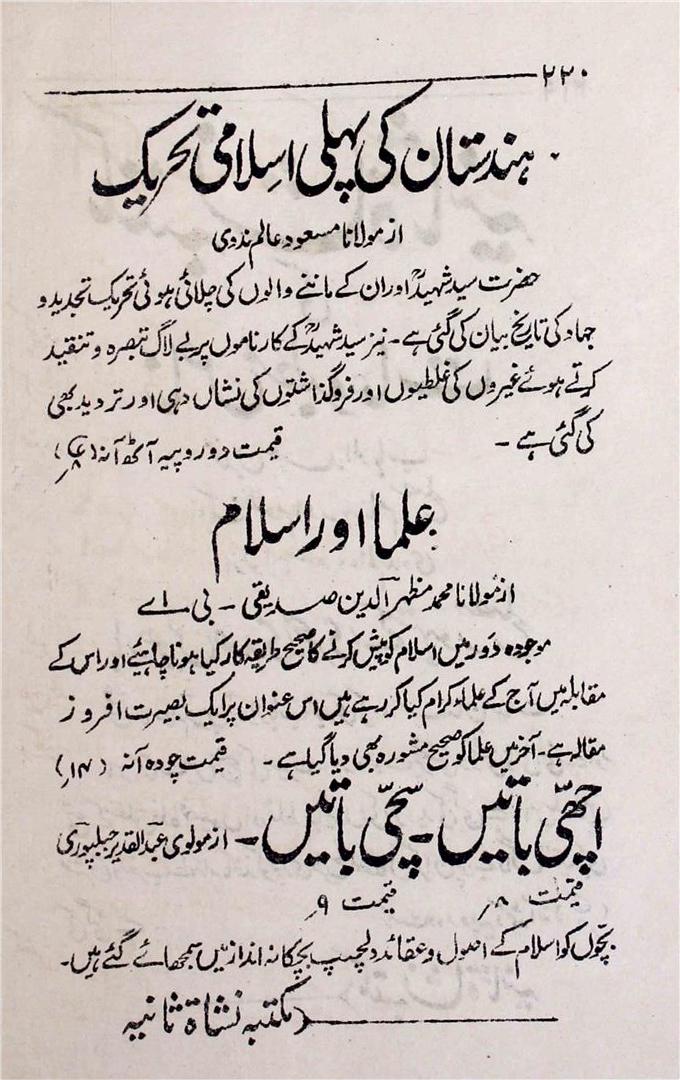 ۲۲۰
ہندستان کی پہلی اسلامی تحریک
از مولانا مسعود عالم ندوی
حضرت سید شہیدؒ اور ان کے ماننے والوں کی چلائی ہوئی تحریک تجدید و
جہاد کی تاریخ بیان کی گئی ہے۔ نیز سید شہیدؒ کے کارناموں پر بے لاگ تبصرہ و تنقید
کرتے ہوئے غیروں کی غلطیوں اور فروگذاشتوں کی نشاں دہی اور تردید بھی
کی گئی ہے۔ قیمت دو روپیہ آٹھ آنہ
علما اور اسلام
از مولانا محمد مظہر الدین صدیقی۔ بی اے
موجودہ دَور میں اسلام کو پیش کرنے کا صحیح طریقہ کار کیا ہونا چاہیئے اور اس کے
مقابلہ میں آج کے علماء کرام کیا کر رہے ہیں اس عنوان پر ایک بصیرت افروز
مقالہ ہے۔ آخر میں علما کو صحیح مشورہ بھی دیا گیا ہے۔ قیمت چودہ آنہ (۱۴؍)
اچھّی باتیں۔ سچّی باتیں۔ از مولوی عبدالقدیر جبلپوری
قیمت ۸؍ قیمت ۹؍
بچّوں کو اسلام کے اصول و عقائد دلچسپ بچکانہ انداز میں سمجھائے گئے ہیں۔
مکتبہ نشاۃ ثانیہ